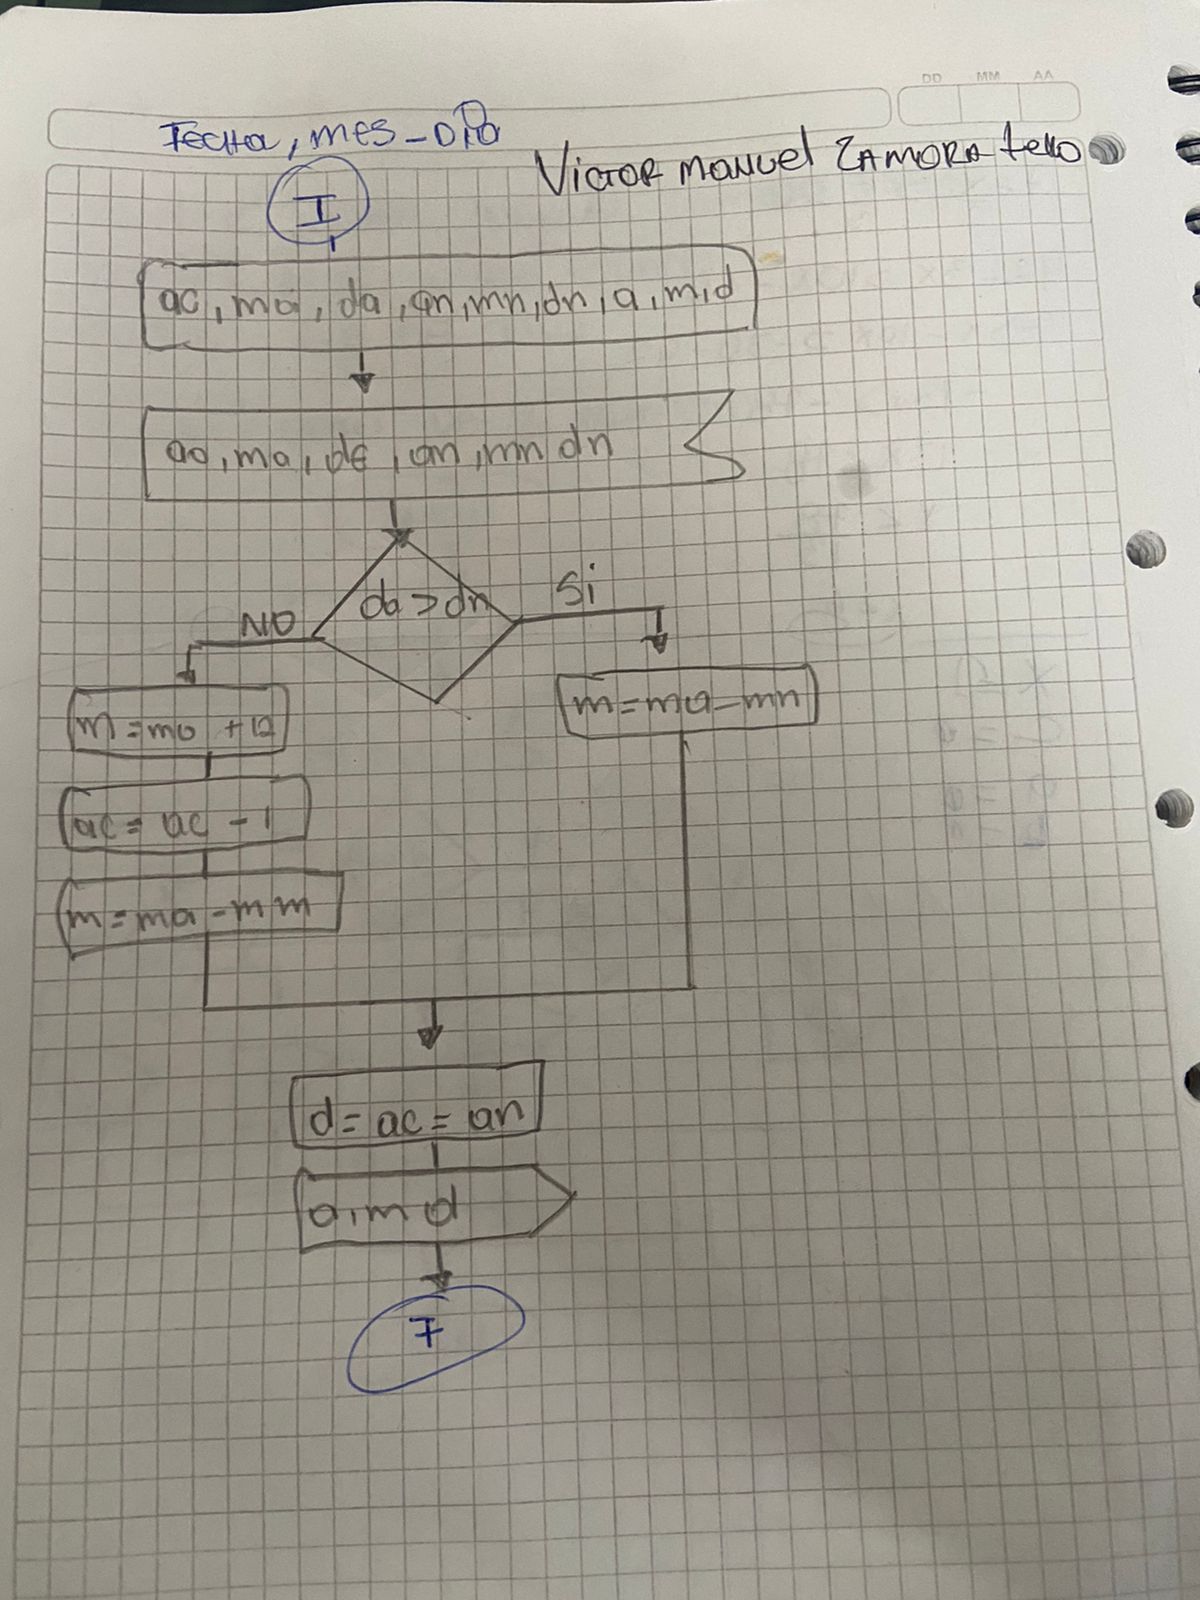 DD MM AA
Fecha, mes-Día
Victor manuel ZAMORA tello
I
ac, ma, da, an, mn, dn, a, m, d
ao, ma, de, an, mn dn
da > dn
Si
NO
m = ma + 12
m = ma - mn
ac = ac - 1
m = ma - mm
d = ac = an
a, m d
7